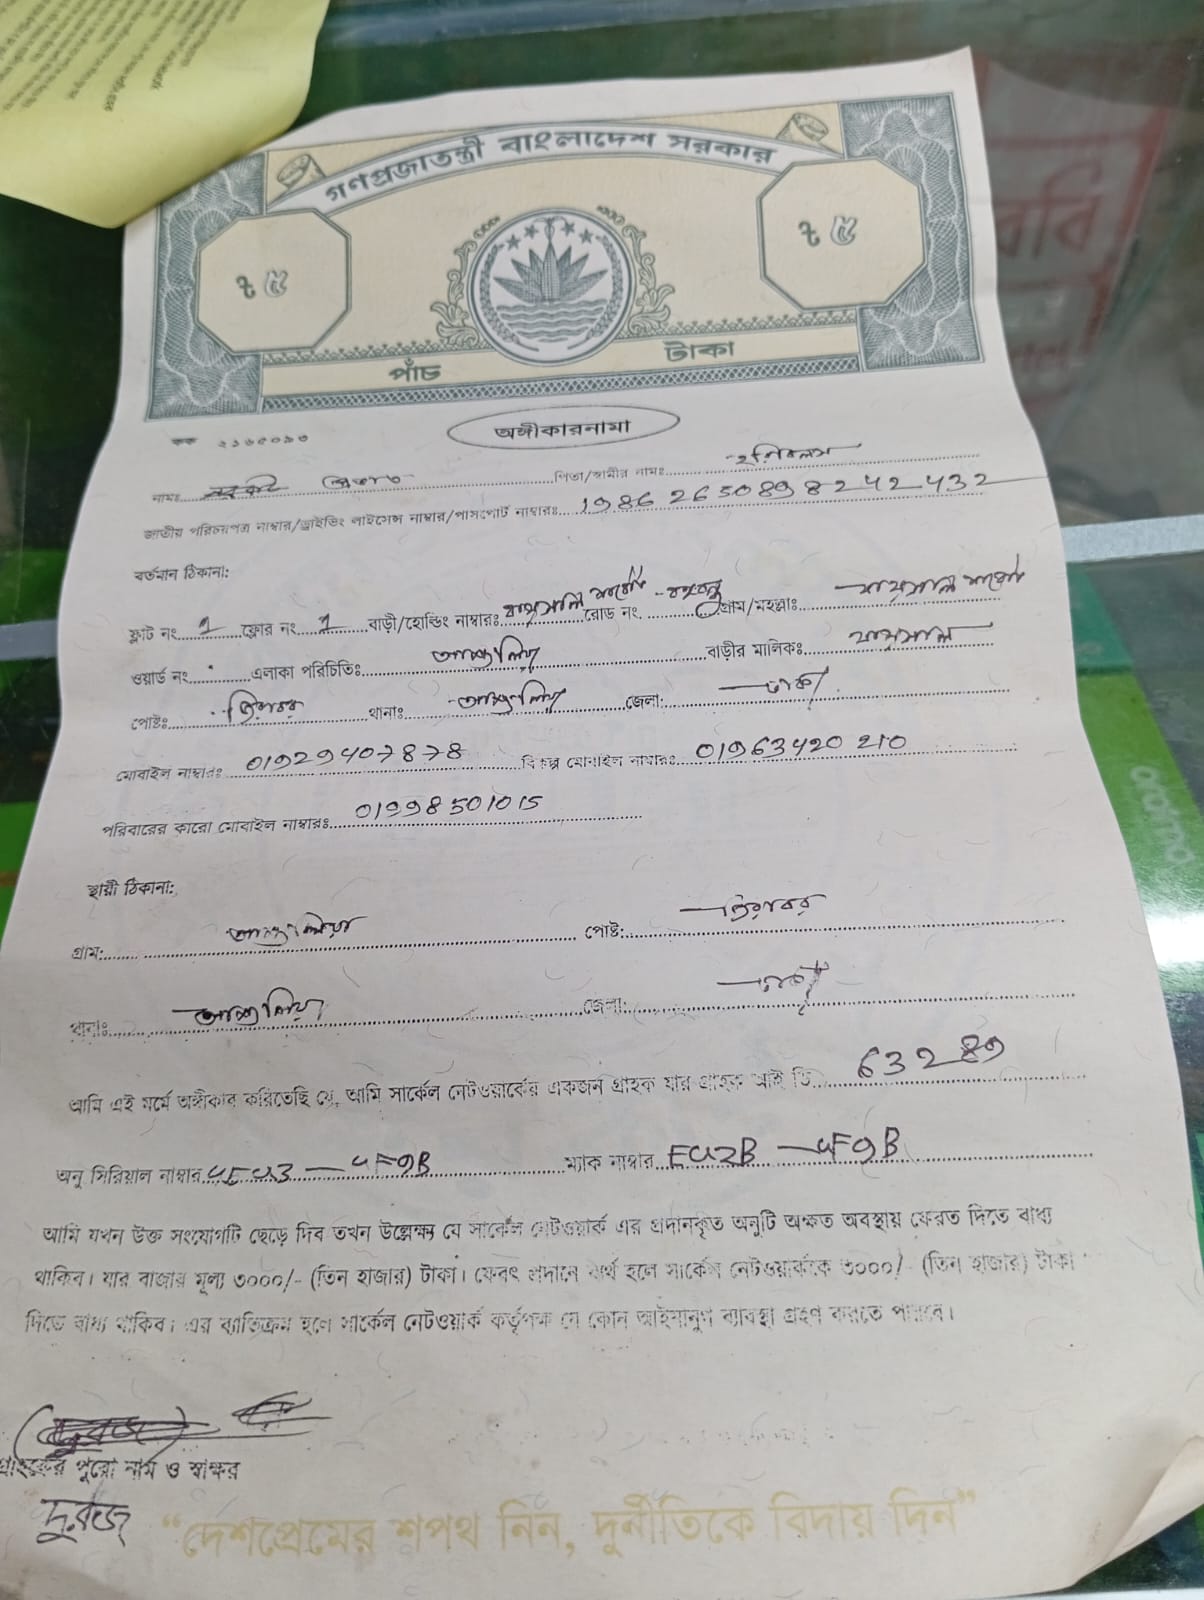 গণপ্রজাতন্ত্রী বাংলাদেশ সরকার
৳ ৫
৳ ৫
পাঁচ টাকা
কক ২১৬৫০৯৩
অঙ্গীকারনামা
নামঃ পিতা/স্বামীর নামঃ
জাতীয় পরিচয়পত্র নাম্বার/ড্রাইভিং লাইসেন্স নাম্বার/পাসপোর্ট নাম্বারঃ 19862650898242432
বর্তমান ঠিকানা:
ফ্লাট নং 1 ফ্লোর নং 1 বাড়ী/হোল্ডিং নাম্বারঃ রোড নং. গ্রাম/মহল্লাঃ
ওয়ার্ড নং এলাকা পরিচিতিঃ আশুলিয়া বাড়ীর মালিকঃ
পোষ্টঃ জিরাবর থানাঃ আশুলিয়া জেলা: ঢাকা
মোবাইল নাম্বারঃ 01929407878 বিকল্প মোবাইল নাম্বারঃ 01963420210
পরিবারের কারো মোবাইল নাম্বারঃ 01998501015
স্থায়ী ঠিকানা:
গ্রাম: আশুলিয়া পোষ্ট: জিরাবর
থানাঃ আশুলিয়া জেলা: ঢাকা
আমি এই মর্মে অঙ্গীকার করিতেছি যে, আমি সার্কেল নেটওয়ার্কের একজন গ্রাহক যার গ্রাহক আই ডি 63289
অনু সিরিয়াল নাম্বার 4F9B ম্যাক নাম্বার 4F9B
আমি যখন উক্ত সংযোগটি ছেড়ে দিব তখন উল্লেক্ষ্য যে সার্কেল নেটওয়ার্ক এর প্রদানকৃত অনুটি অক্ষত অবস্থায় ফেরত দিতে বাধ্য
থাকিব। যার বাজার মূল্য ৩০০০/- (তিন হাজার) টাকা। ফেরৎ প্রদানে ব্যর্থ হলে সার্কেল নেটওয়ার্ককে ৩০০০/- (তিন হাজার) টাকা
দিতে বাধ্য থাকিব। এর ব্যাতিক্রম হলে সার্কেল নেটওয়ার্ক কর্তৃপক্ষ যে কোন আইনানুগ ব্যাবস্থা গ্রহণ করতে পারবে।
গ্রাহকের পুরো নাম ও স্বাক্ষর
“দেশপ্রেমের শপথ নিন, দুর্নীতিকে বিদায় দিন”